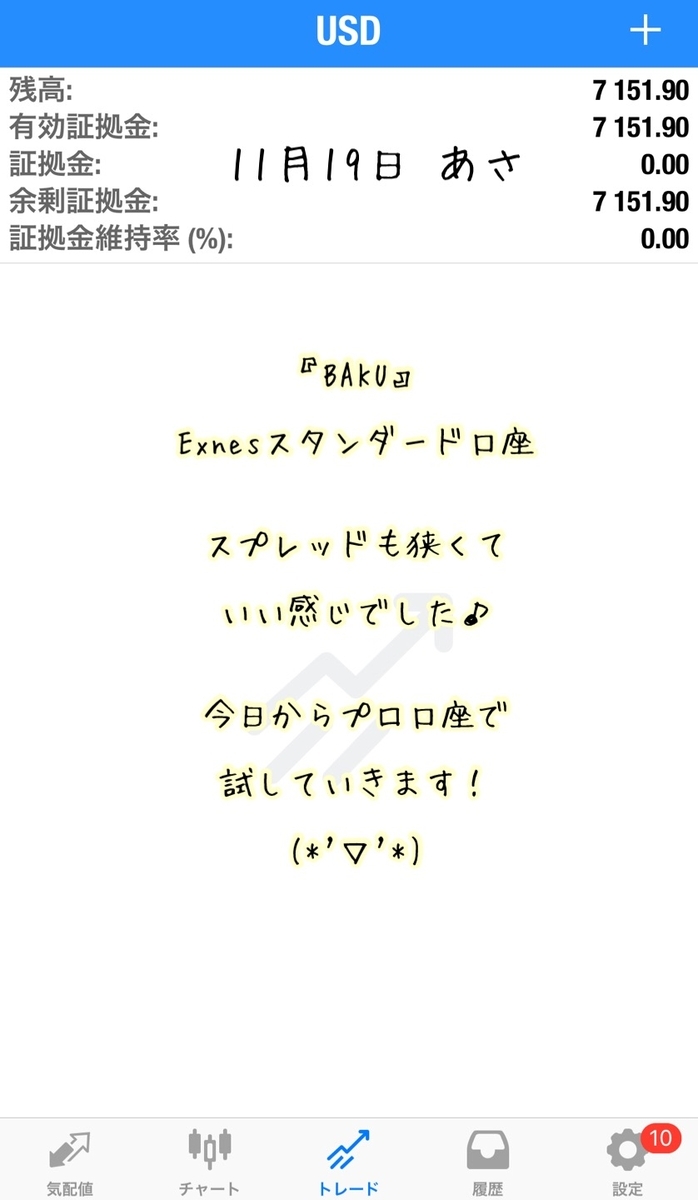 USD
残高: 7 151.90
有効証拠金: 7 151.90
証拠金: 0.00
11月19日 あさ
余剰証拠金: 7 151.90
証拠金維持率 (%): 0.00
『BAKU』
Exnesスタンダード口座
スプレッドも狭くて
いい感じでした♪
今日からプロ口座で
試していきます!
(*'▽'*)
気配値 チャート トレード 履歴 設定 10